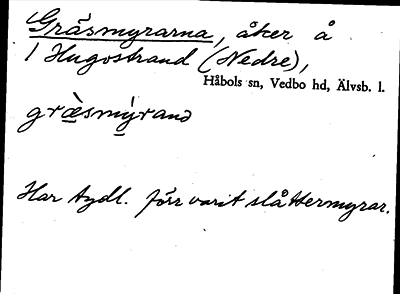 Gräsmyrarna, åker å
1 Hugostrand (Nedre),
Håbols sn, Vedbo hd, Älvsb. l.
græ̀smýrana
Har tydl. förr varit slåttermyrar.